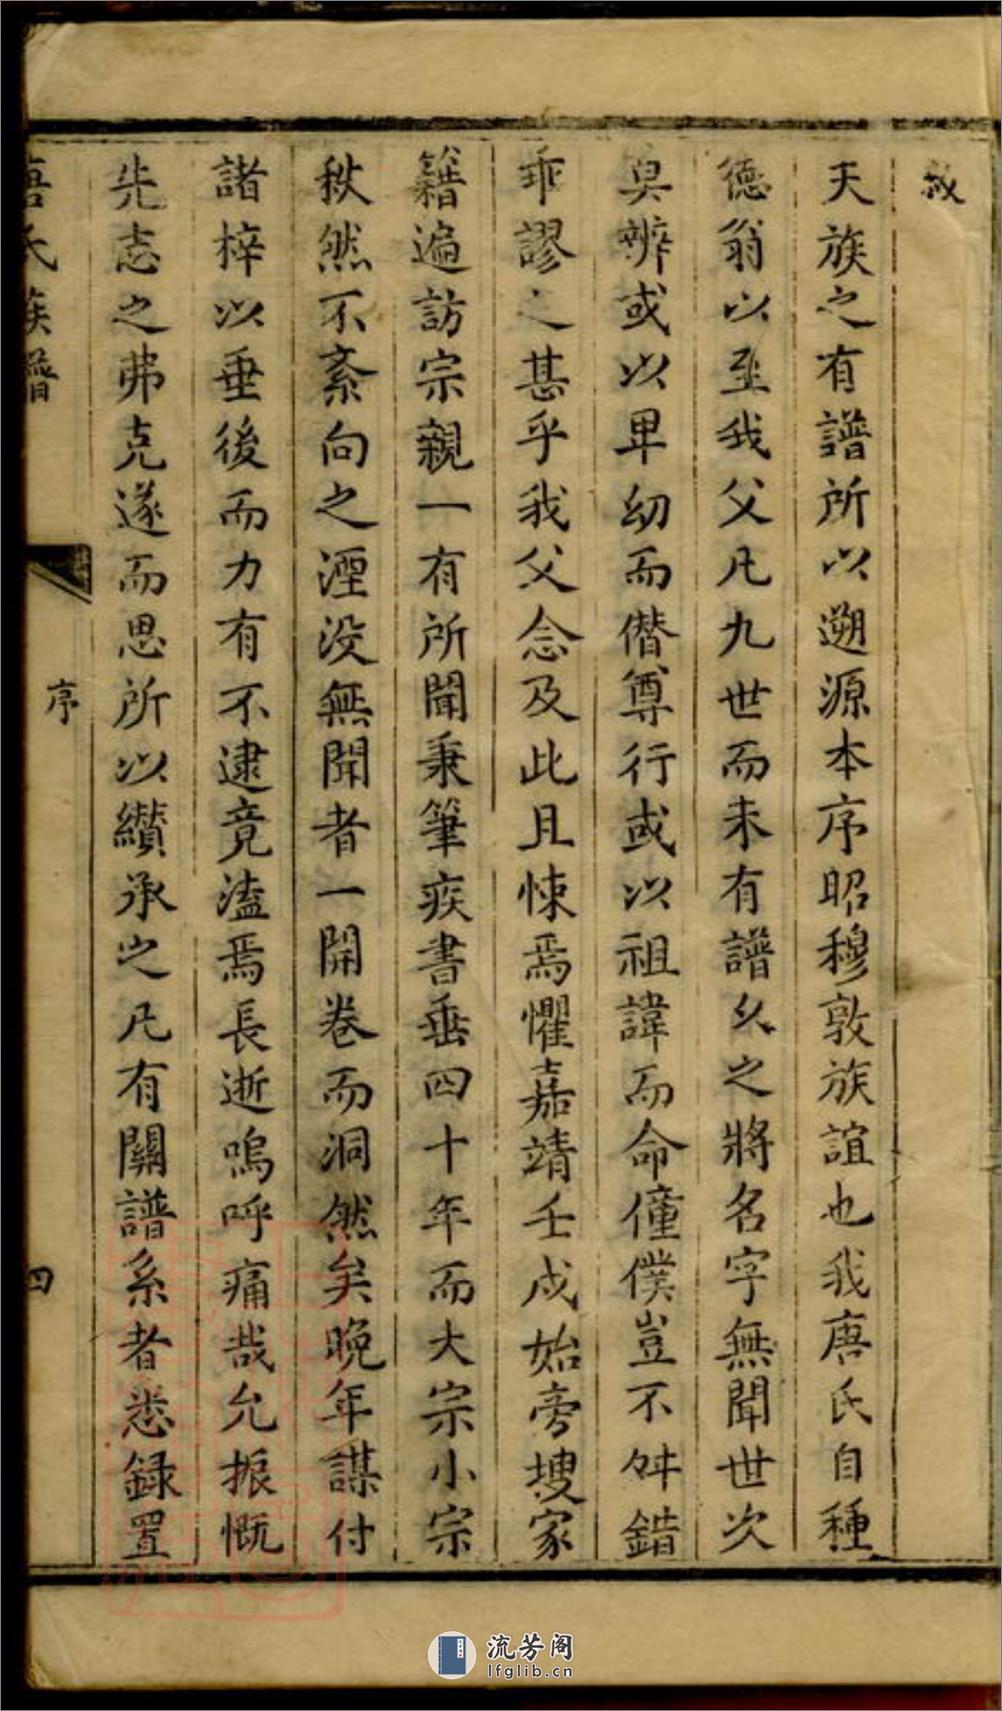 叙
天族之有譜所以遡源本序昭穆敦族誼也我唐氏自種
德翁以至我父凡九世而未有譜久之將名字無聞世次
莫辨或以卑幼而僭尊行或以祖諱而命僮僕豈不舛錯
乖謬之甚乎我父念及此且悚焉懼嘉靖壬戌始旁搜家
籍遍訪宗親一有所聞秉筆疾書垂四十年而大宗小宗
秩然不紊向之湮没無聞者一開卷而洞然矣晚年謀付
諸梓以垂後而力有不逮竟溘焉長逝嗚呼痛哉允振慨
先志之弗克遂而思所以纘承之凡有關譜系者悉録置
唐氏族譜
序
四
流芳阁
lfglib.cn